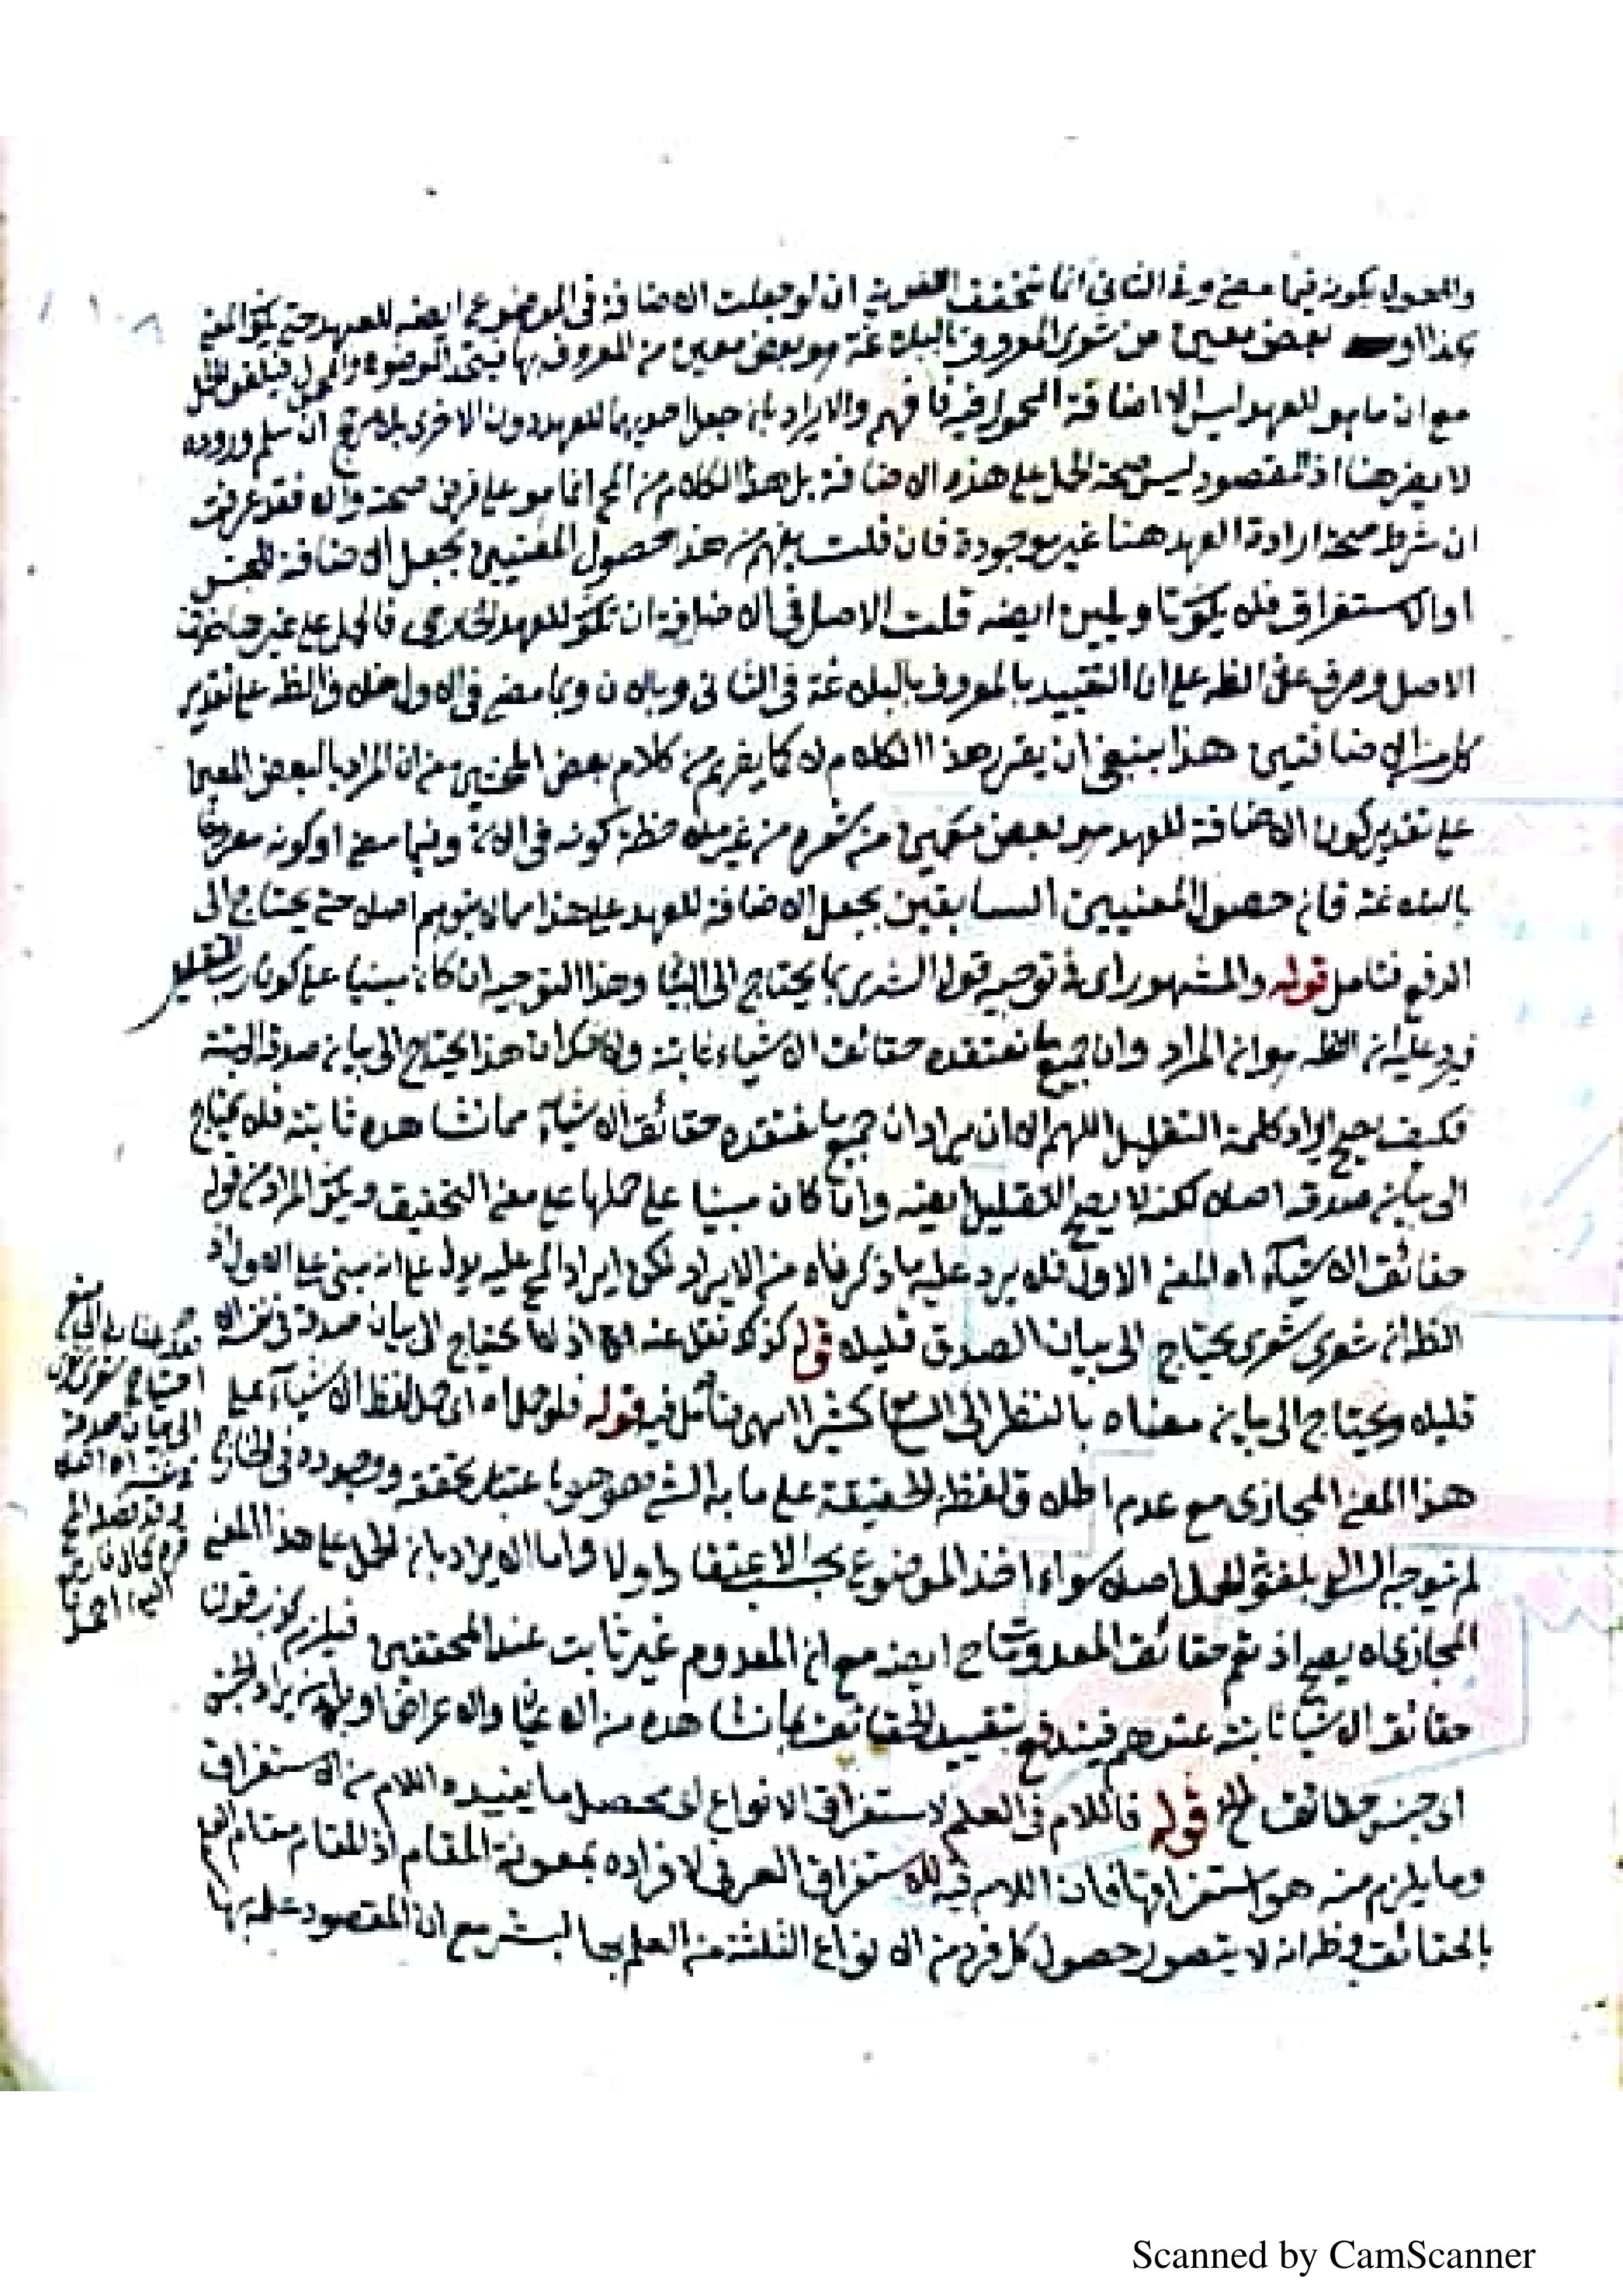 والمحمول بكونه فيما مضى وفى الثانى انما تتحقق اللغوية ان لو جعلت الاضافة فى الموضوع ايضه للعهد حتى يكو المعنى
بعض معين من شعرى المعروف بالبلاغة هو بعض معين من المعروف بها فيتحد الموضوع والمحمول فيلغو الحمل
مع ان ما هو للعهد ليس الا اضافة المحمول فيه فافهم والايراد بان جعل احديهما للعهد دون الاخرى بلا مرجح ان سلم وروده
لا يضر هنا اذ المقصود ليس صحة الحمل على هذه الاضافة بل هذا الكلام من المح انما هو على فرض صحته والا فقد عرفت
ان شرط صحة ارادة العهد هنا غير موجودة فان قلت يفهم من هذا حصول المعنيين بجعل الاضافة للجنس
او الاستغراق فلا يكو تاويلين ايضه قلت الاصل فى الاضافة ان تكو للعهد الخارجى فالحمل على غيرها خلاف
الاصل وصرف عن الظه على ان التقييد بالمعروف بالبلاغة فى الثانى وبالان وبما مضى فى الاول خلاف الظه على تقدير
كل من الاضافتين هذا ينبغى ان يقرر هذا الكلام لا كما يفهم من كلام بعض المحشين من ان المراد بالبعض المعين
على تقدير كون الاضافة للعهد هو بعض معين من شعره من غير ملاحظة كونه فى الان وفيما مضى او كونه معروفا
بالبلاغة فان حصول المعنيين السابقين بجعل الاضافة للعهد على هذا مما لا يتوهم اصلا حتى يحتاج الى
الدفع فتامل قوله والمشهور اى فى توجيه قول الش ربما يحتاج الى البيان وهذا التوجيه ان كان مبنيا على كون رب للتقليل
فيرد عليه ان الظه هو ان المراد وان جميع ما نعتقده حقائق الاشياء ثابتة ولا شك ان هذا يحتاج الى بيان صدقه البتة
فكيف يصح ايراد كلمة التقليل اللهم الا ان يراد ان جميع ما نعتقده حقائق الاشياء مما نشاهده ثابتة فلا يحتاج
الى بيان صدقه اصلا لكنه لا يصح التقليل ايضه وان كان مبنيا على حملها على معنى التحقيق ويكو المراد من قوله
حقائق الاشياء اه المعنى الاول فلا يرد عليه ما ذكرناه من الايراد لكن ايراد المح عليه يدل على انه مبنى على الاول اذ
الظ ان شعرى شعرى يحتاج الى بيان الصدق قليلا قوله كذلك نقل عنه اه اذ لا يحتاج الى بيان صدقه فى نفسه الا
قليلا ويحتاج الى بيان معناه بالنظر الى السامع كثيرا انتهى فتأمل فيه قوله فلو حمل اه اى حمل لفظ الاشياء على
هذا المعنى المجازى مع عدم اطلاق لفظ الحقيقة على ما به الشئ هو هو باعتبار تحققه ووجوده فى الخارج
لم يتوجه السؤال بلغوية الحمل اصلا سواء اخذ الموضوع بحسب الاعتقاد او لا واما الايراد بان الحمل على هذا المعنى
المجازى لا يصح اذ ثم حقائق المعدومات ايضه مع ان المعدوم غير ثابت عند المحققين فيلزم كذب قولنا
حقائق الاشياء ثابتة عندهم فيندفع بتقييد الحقائق بما نشاهده من الاعيان والاعراض او بانه يراد الجنس
اى جنس حقائق الخ قوله فاللام فى العلم لاستغراق الانواع اى محصل ما يفيده اللام من الاستغراق
وما يلزم منه هو استغراقها فان اللام فيه للاستغراق العرفى لافراده بمعونة المقام اذ المقام مقام العلم
بالحقائق وظ انه لا يتصور حصول كل فرد من الانواع الثلثة من العلم بها لبشر مع ان المقصود علمه بها
احتياج شعرى شعرى
الى بيان صدقه
Scanned by CamScanner